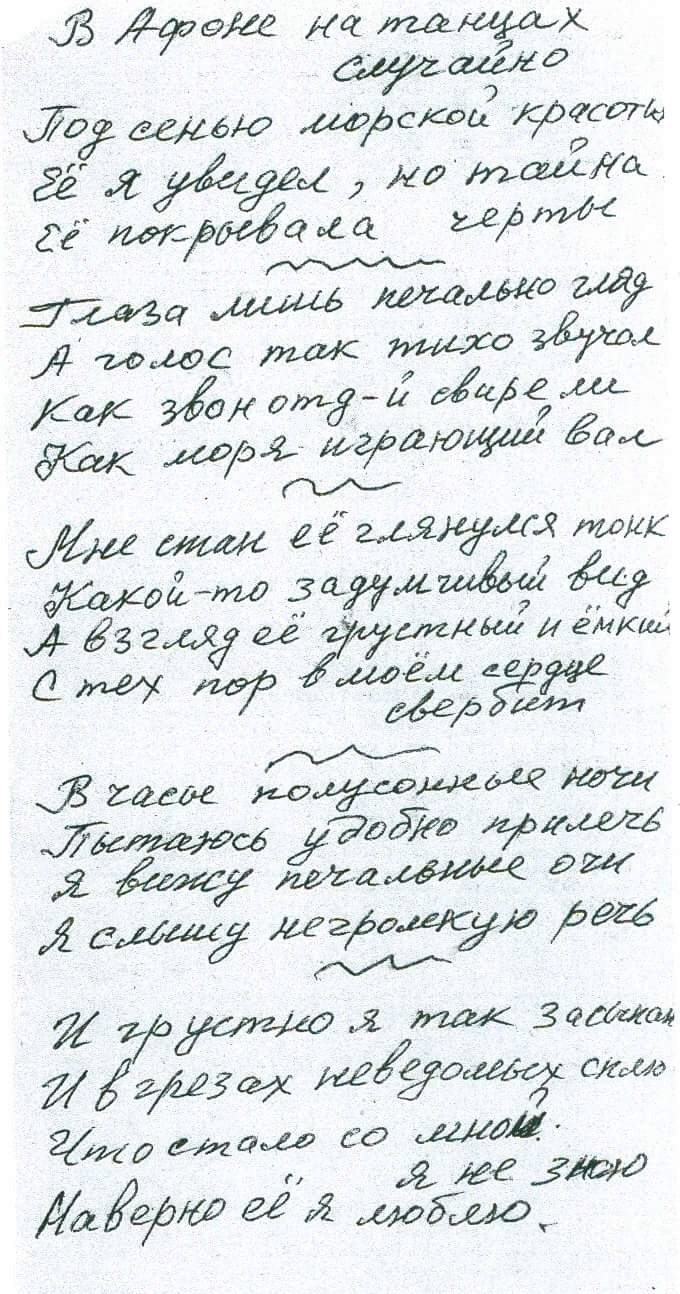 В Афоне на танцах
случайно
Под сенью морской красоты
Её я увидел, но тайна
Её покрывала черты
Глаза лишь печально гляд
А голос так тихо звучал
Как звон отд-й свирели
Как моря играющий вал
Мне стан её глянулся тонк
Какой-то задумчивый вид
А взгляд её грустный и ёмкий
С тех пор в моём сердце
свербит
В часы полусонные ночи
Пытаюсь удобно прилечь
Я вижу печальные очи
Я слышу негромкую речь
И грустно я так засыпаю
И в грезах неведомых сплю
Что стало со мной.
я не знаю
Наверно её я люблю.